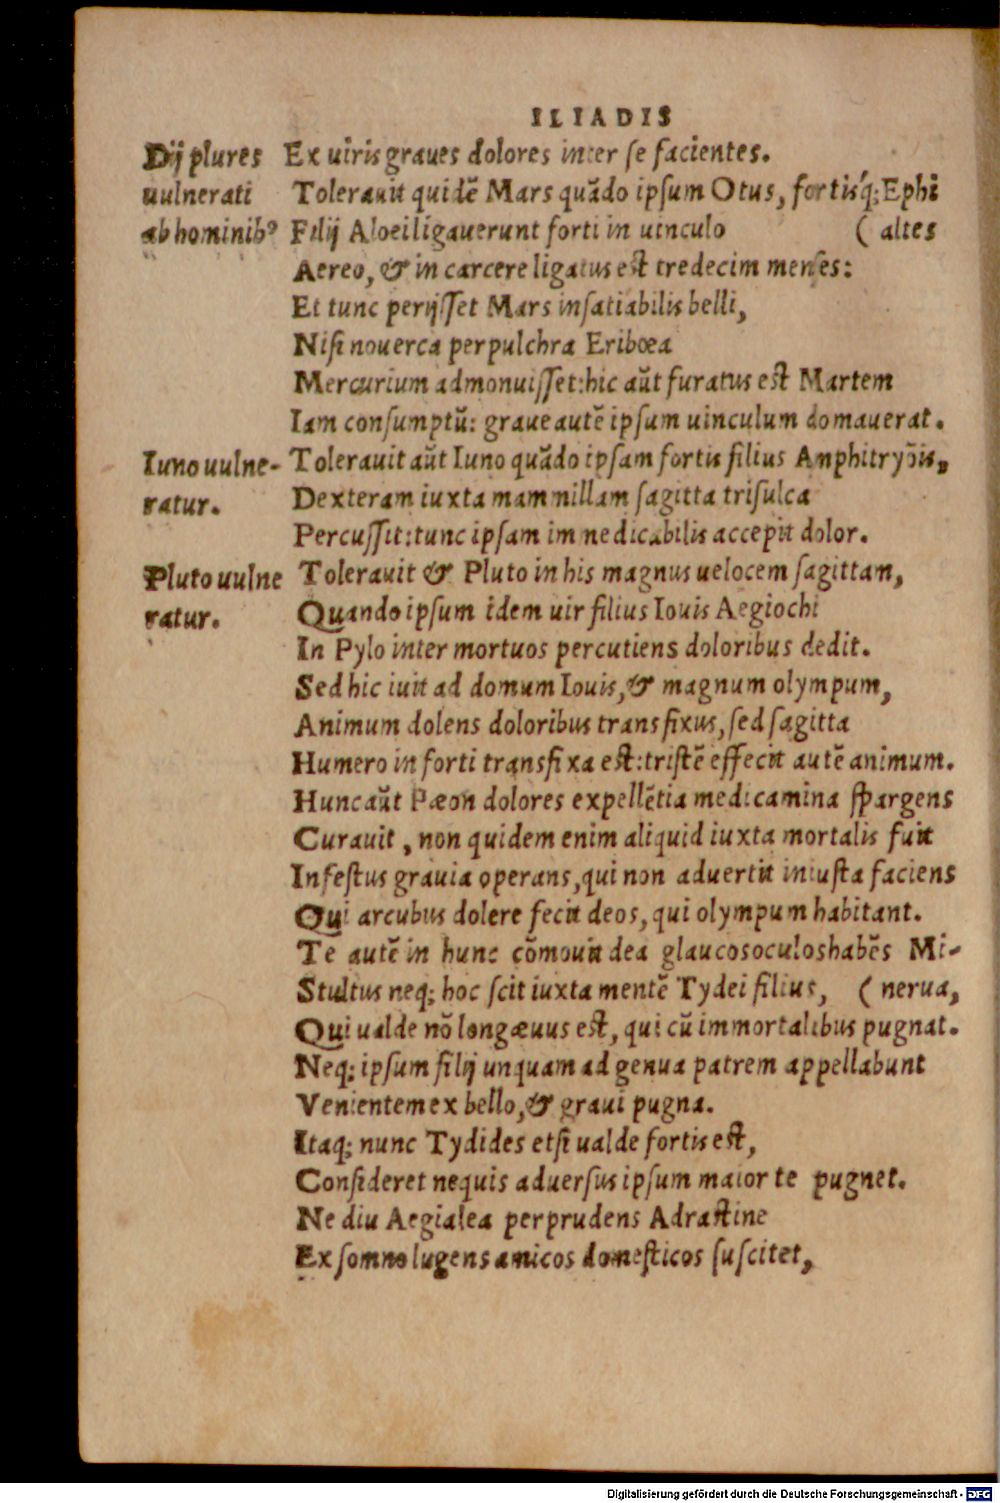 ILIADIS
Dij plures
uulnerati
ab hominibꝰ
Ex uiris graues dolores inter se facientes.
Tolerauit quidē Mars quādo ipsum Otus, fortisq́; Ephi
Filij Aloei ligauerunt forti in uinculo ( altes
Aereo, & in carcere ligatus est tredecim menses:
Et tunc perijsset Mars insatiabilis belli,
Nisi nouerca perpulchra Eribœa
Mercurium admonuisset: hic aūt furatus est Martem
Iam consumptū: graue autē ipsum uinculum domauerat.
Iuno uulne-
ratur.
Tolerauit aūt Iuno quādo ipsam fortis filius Amphitryōis,
Dexteram iuxta mammillam sagitta trisulca
Percussit: tunc ipsam immedicabilis accepit dolor.
Pluto uulne
ratur.
Tolerauit & Pluto in his magnus uelocem sagittam,
Quando ipsum idem uir filius Iouis Aegiochi
In Pylo inter mortuos percutiens doloribus dedit.
Sed hic iuit ad domum Iouis, & magnum olympum,
Animum dolens doloribus transfixus, sed sagitta
Humero in forti transfixa est: tristē effecit autē animum.
Hunc aūt Pæon dolores expellētia medicamina spargens
Curauit, non quidem enim aliquid iuxta mortalis fuit
Infestus grauia operans, qui non aduertit iniusta faciens
Qui arcubus dolere fecit deos, qui olympum habitant.
Te autē in hunc cōmouit dea glaucosoculoshabēs Mi-
Stultus neq; hoc scit iuxta mentē Tydei filius, ( nerua,
Qui ualde nō longæuus est, qui cū immortalibus pugnat.
Neq; ipsum filij unquam ad genua patrem appellabunt
Venientem ex bello, & graui pugna.
Itaq; nunc Tydides etsi ualde fortis est,
Consideret nequis aduersus ipsum maior te pugnet.
Ne diu Aegialea perprudens Adrastine
Ex somno lugens amicos domesticos suscitet,
Digitalisierung gefördert durch die Deutsche Forschungsgemeinschaft - DFG